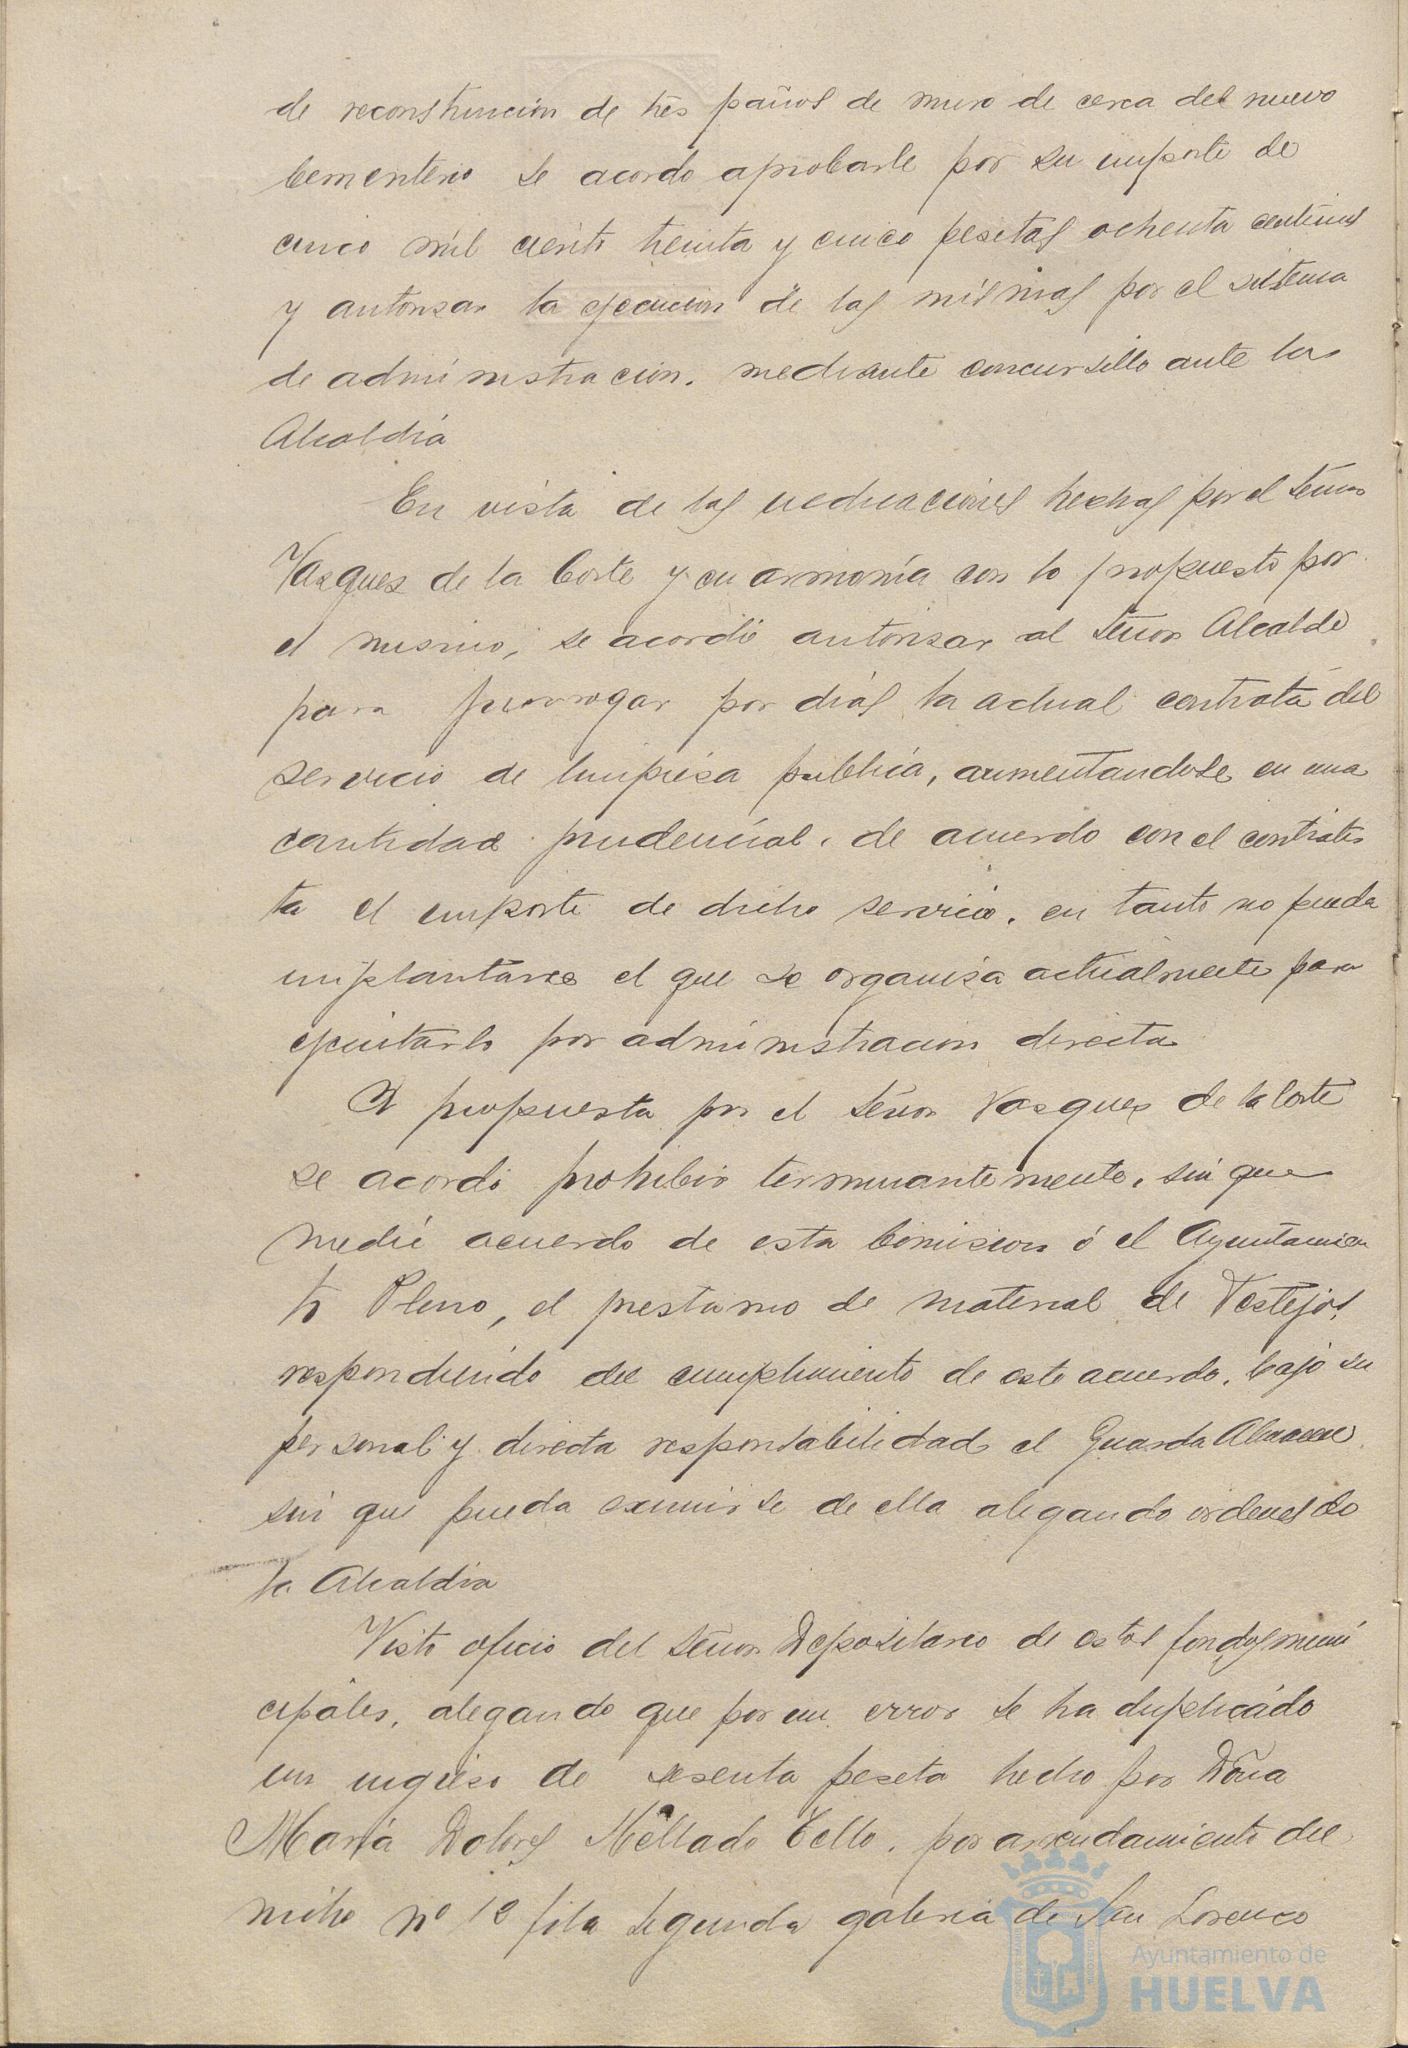 de reconstrucion de tres paños de muro de cerca del nuevo
Cementerio se acordo aprobarle por su importe de
cinco mil ciento treinta y cinco pesetas ochenta centimos
y autorisar la ejecucion de las mismas por el sistema
de administracion. mediante concursillo ante la
Alcaldia
En vista de las indicaciones hechas por el señor
Vasques de la Corte y en armonía con lo propuesto por
el mismo, se acordó autorisar al Señor Alcalde
para prorrogar por dias la actual contrata del
servicio de limpiesa publica, aumentandose en una
cantidad prudencial. de acuerdo con el contratis
ta el importe de dicho servicio. en tanto no pueda
implantarse el que se organisa actualmente para
ejecutarlo por administracion directa
A propuesta por el señor Vasques de la Corte
se acordó prohibir terminantemente, sin que
medie acuerdo de esta Comision ó el Ayuntamien
to Pleno, el prestamo de material de Festejos,
respondiendo del cumplimiento de este acuerdo, bajo su
personal y directa responsabilidad el Guarda Almacen
sin que pueda eximirse de ella alegando ordenes de
la Alcaldia
Visto oficio del señor Depositario de estos fondos muni
cipales, alegando que por un error se ha duplicado
un ingreso de sesenta peseta hecho por Doña
María Dolores Mellado Tello. por arrendamiento del
nicho nº 12 fila segunda galeria de San Lorenco
Ayuntamiento de
HUELVA